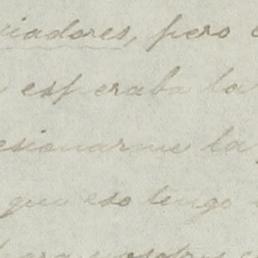 iadores, pero
esperaba la
esionarme la
que eso tengo